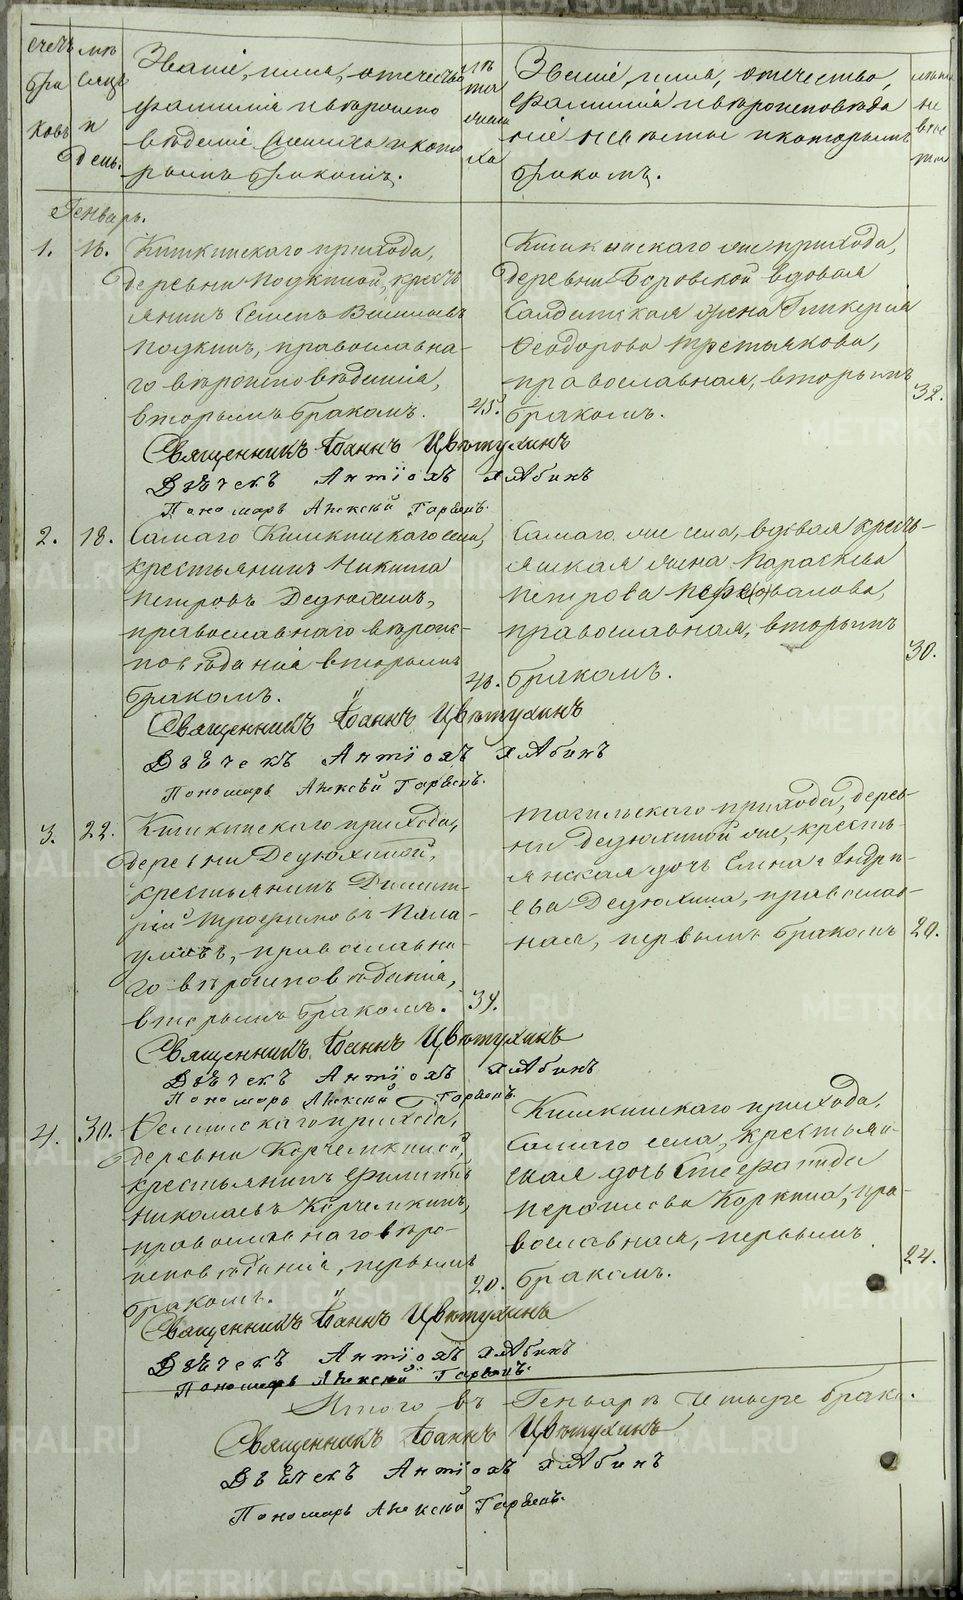 счетъ бра ковъ
мѣ сяцъ и день.
Званіе, имя, отчество
фамилія и вѣроиспо
вѣданіе жениха и кото
рымъ бракомъ.
лѣ та жени ха
Званіе, имя, отчество,
фамилія и вѣроисповѣда
ніе невѣсты и которымъ
бракомъ.
Генварь.
1. 16. Кишкинскаго прихода,
деревни Подкиной, кресть
янинъ Семенъ Васильевъ
Подкинъ, православна-
го вѣроисповѣданія,
вторымъ бракомъ. 45.
Кишкинскаго же прихода,
деревни Боровской вдовая
Солдатская жена Гликерія
Ѳеодорова Третьякова,
православная, вторымъ
бракомъ. 32.
Священникъ Іоаннъ Цвѣтухинъ
Дьячекъ Антіохъ Хлябинъ
Пономарь Алексій
2. 18. Самаго Кишкинскаго села,
крестьянинъ Никита
Петровъ Дедюхинъ,
православнаго вѣроис-
повѣданія вторымъ
бракомъ. 40.
Самаго же села, вдовая кресть-
янская жена Параскева
Петрова
православная, вторымъ
бракомъ. 30.
Священникъ Іоаннъ Цвѣтухинъ
Дьячекъ Антіохъ Хлябинъ
Пономарь Алексій
3. 22. Кишкинскаго прихода,
деревни Дедюхиной,
крестьянинъ Димит-
рій Трофимовъ
православна-
го вѣроисповѣданія,
вторымъ бракомъ. 34.
Тагильскаго прихода, дерев-
ни Дедюхиной же, кресть-
янская дочь Елена Андре-
ева Дедюхина, православ-
ная, первымъ бракомъ 20.
Священникъ Іоаннъ Цвѣтухинъ
Дьячекъ Антіохъ Хлябинъ
Пономарь Алексій
4. 30. прихода,
деревни Корчемкиной,
крестьянинъ Филиппъ
Николаевъ Корчемкинъ,
православнаго вѣро-
исповѣданія, первымъ
бракомъ. 20.
Кишкинскаго прихода,
Самаго села, крестьян-
ская дочь Стефанида
Коркина, пра-
вославная, первымъ
бракомъ. 24.
Священникъ Іоаннъ Цвѣтухинъ
Дьячекъ Антіохъ Хлябинъ
Пономарь Алексій
Итого въ Генварѣ Четыре брака.
Священникъ Іоаннъ Цвѣтухинъ
Дьячекъ Антіохъ Хлябинъ
Пономарь Алексій
METRIKI.GASO-URAL.RU